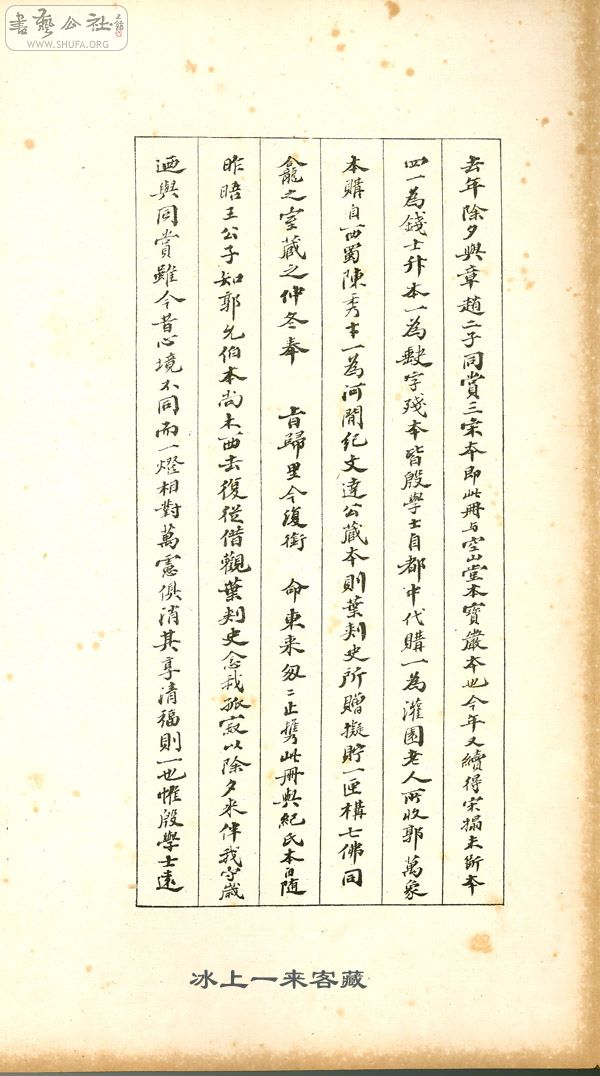 書藝公社
WWW.SHUFA.ORG
去年除夕與章趙二子同賞三宋本即此冊与空山堂本寶嚴本也今年又續得宋搨未斷本
四一為錢士升本一為歝字殘本皆殷學士自都中代購一為灌園老人所收郭萬象
本購自西蜀陳秀才一為河閒紀文達公藏本則葉刾史所贈擬貯一匣構七佛同
龕之室藏之仲冬奉 旨歸里今復銜 命東来匆〻止攜此冊與紀氏本自随
昨晤王公子知郭允伯本尚未西去復從借觀葉刾史念我孤寂以除夕来伴我守歲
廼與同賞雖今昔心境不同而一燈相對萬慮俱消其享清福則一也惟殷學士遠
冰上一来客藏